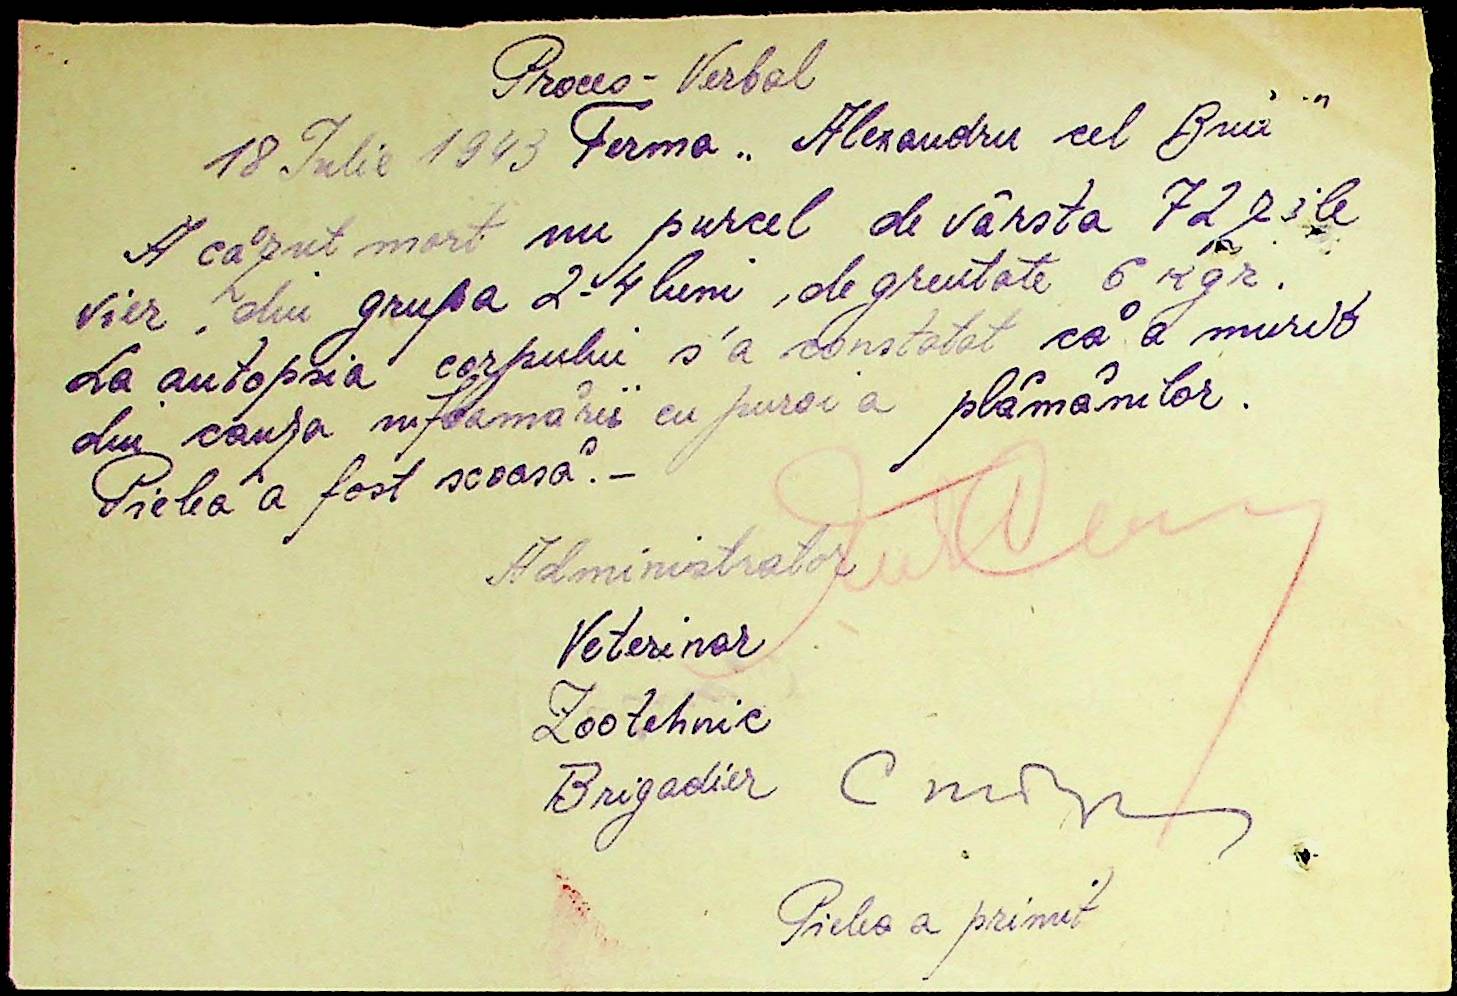 Proces-Verbal
18 Iulie 1943 Ferma „Alexandru cel Bun"
A căzut mort un purcel de vârsta 72 zile
vier, din grupa 2-4 luni, de greutate 6 kgr.
La autopsia corpului s'a constatat că a murit
din cauza inflamării cu puroi a plămânilor.
Pielea a fost scoasă.-
Administrator
Veterinar
Zootehnic
Brigadier
Pielea a primit